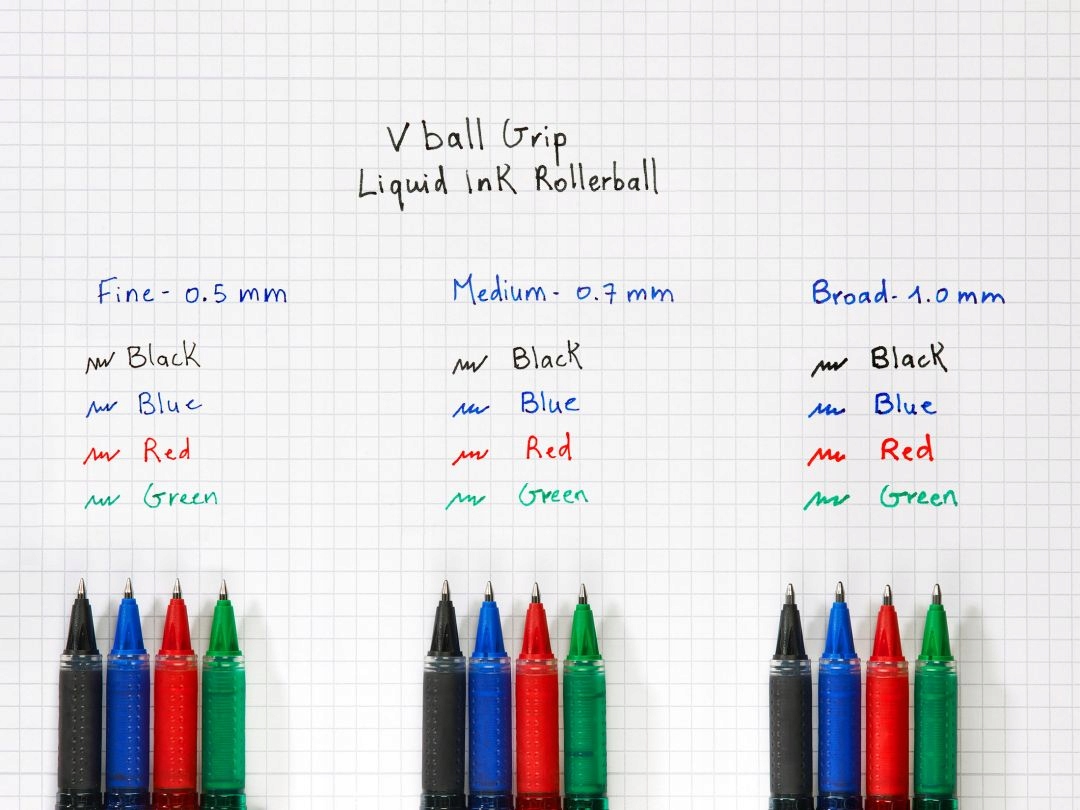 V ball Grip
Liquid Ink Rollerball
Fine - 0.5 mm
Black
Blue
Red
Green
Medium - 0.7 mm
Black
Blue
Red
Green
Broad - 1.0 mm
Black
Blue
Red
Green